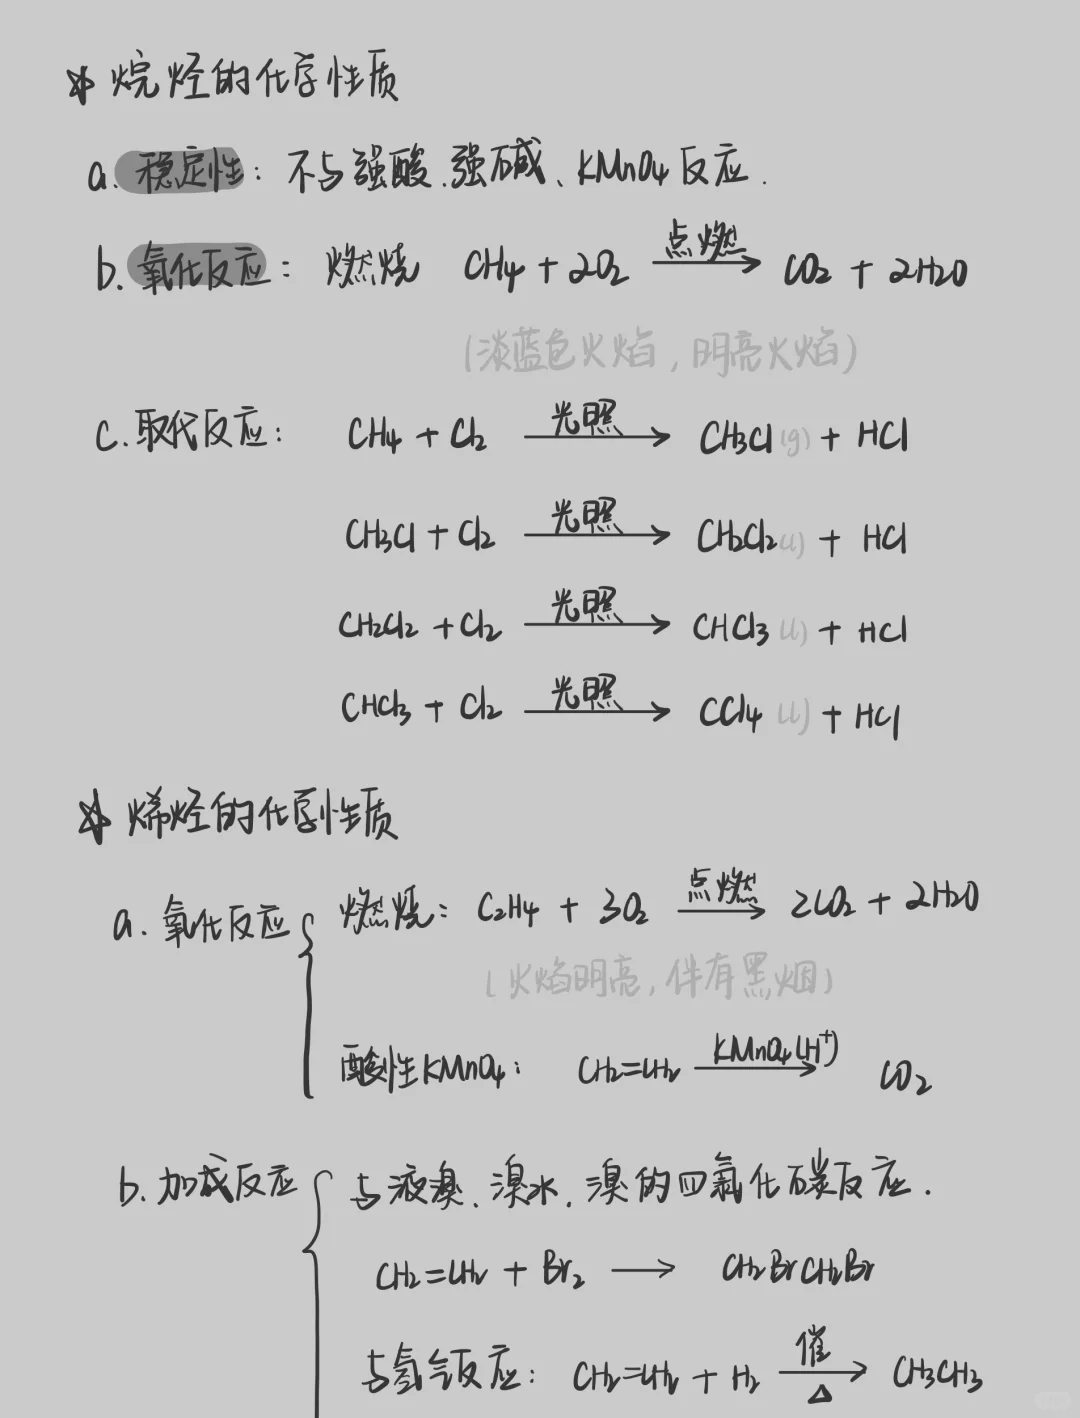 ☆ 烷烃的化学性质
a. 稳定性: 不与强酸、强碱、KMnO4反应.
b. 氧化反应: 燃烧 CH4 + 2O2 —点燃→ CO2 + 2H2O
(淡蓝色火焰, 明亮火焰)
c. 取代反应: CH4 + Cl2 —光照→ CH3Cl (g) + HCl
CH3Cl + Cl2 —光照→ CH2Cl2 (l) + HCl
CH2Cl2 + Cl2 —光照→ CHCl3 (l) + HCl
CHCl3 + Cl2 —光照→ CCl4 (l) + HCl
☆ 烯烃的化学性质
a. 氧化反应 { 燃烧: C2H4 + 3O2 —点燃→ 2CO2 + 2H2O
(火焰明亮, 伴有黑烟)
酸性KMnO4: CH2=CH2 —KMnO4(H+)→ CO2
b. 加成反应 { 与液溴、溴水、溴的四氯化碳反应.
CH2=CH2 + Br2 → CH2BrCH2Br
与氢气反应: CH2=CH2 + H2 —催/△→ CH3CH3